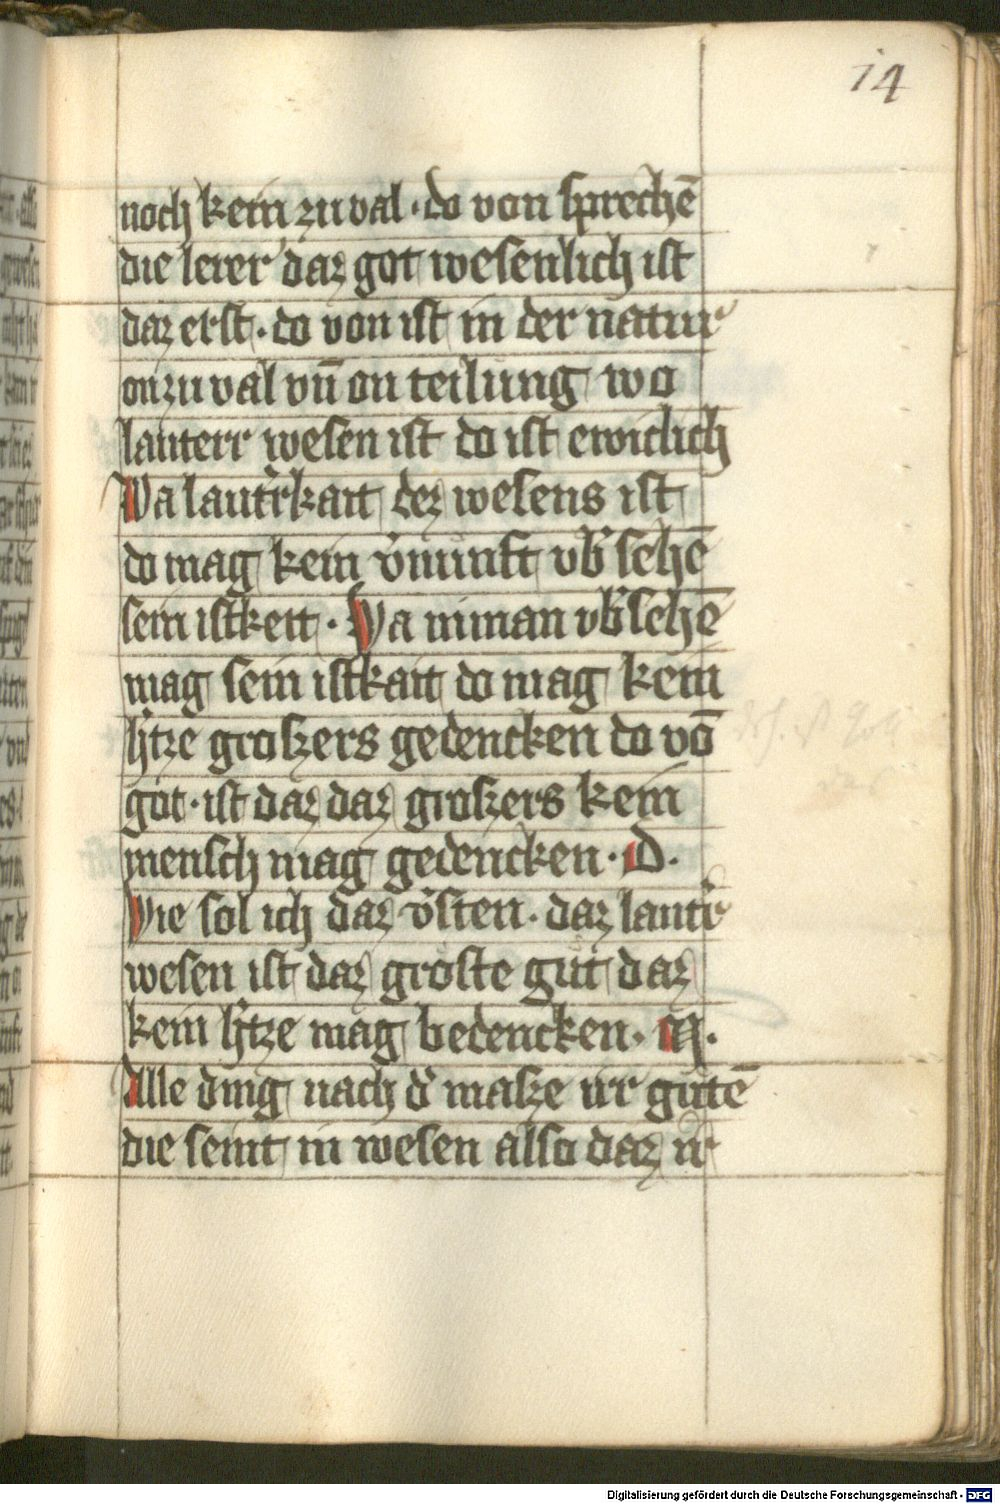 14
noch kein zu val · do von sprechē
die lerer daz got wesenlich ist
daz erst · do von ist in der natur
on zu val vn̄ on teilung wo
lauterr wesen ist do ist ewiclich
Wa laut̾kait dez wesens ist
do mag kein v̾nunft vb̾sehē
sein istkeit · Wa niman vb̾sehē
mag sein istkait do mag kein
h̾tze groszers gedencken do vō
got · ist daz daz groszers kein
mensch mag gedencken · D ·
Wie sol ich daz v̾sten · daz laut̾
wesen ist daz groste gut daz
kein h̾tze mag bedencken · M ·
Alle ding nach d̾ masze irr gutē
die seint in wesen also daz ir
Digitalisierung gefördert durch die Deutsche Forschungsgemeinschaft - DFG